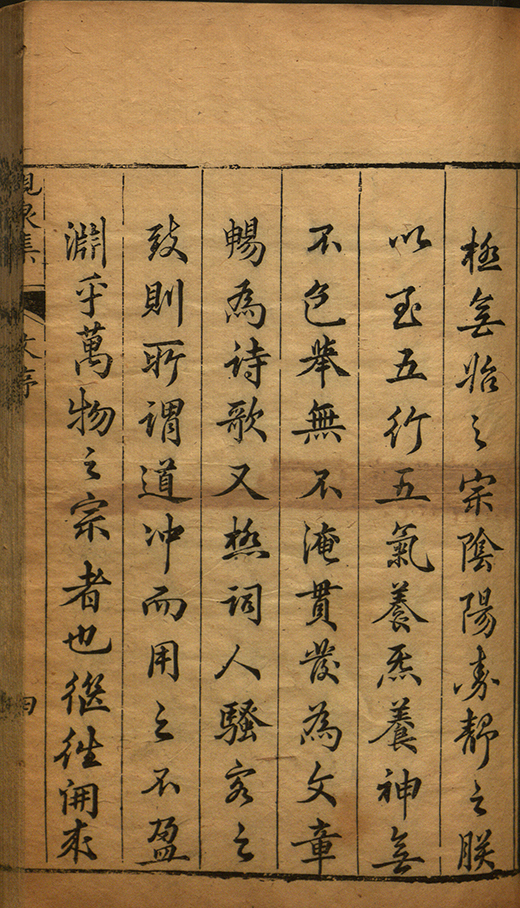 極無始之宗陰陽動靜之朕
以至五行五氣養炁養神無
不包舉無不淹貫發為文章
暢為詩歌又極詞人騷客之
致則所謂道冲而用之不盈
淵乎萬物之宗者也繼往開來
峴泉集 文序 四